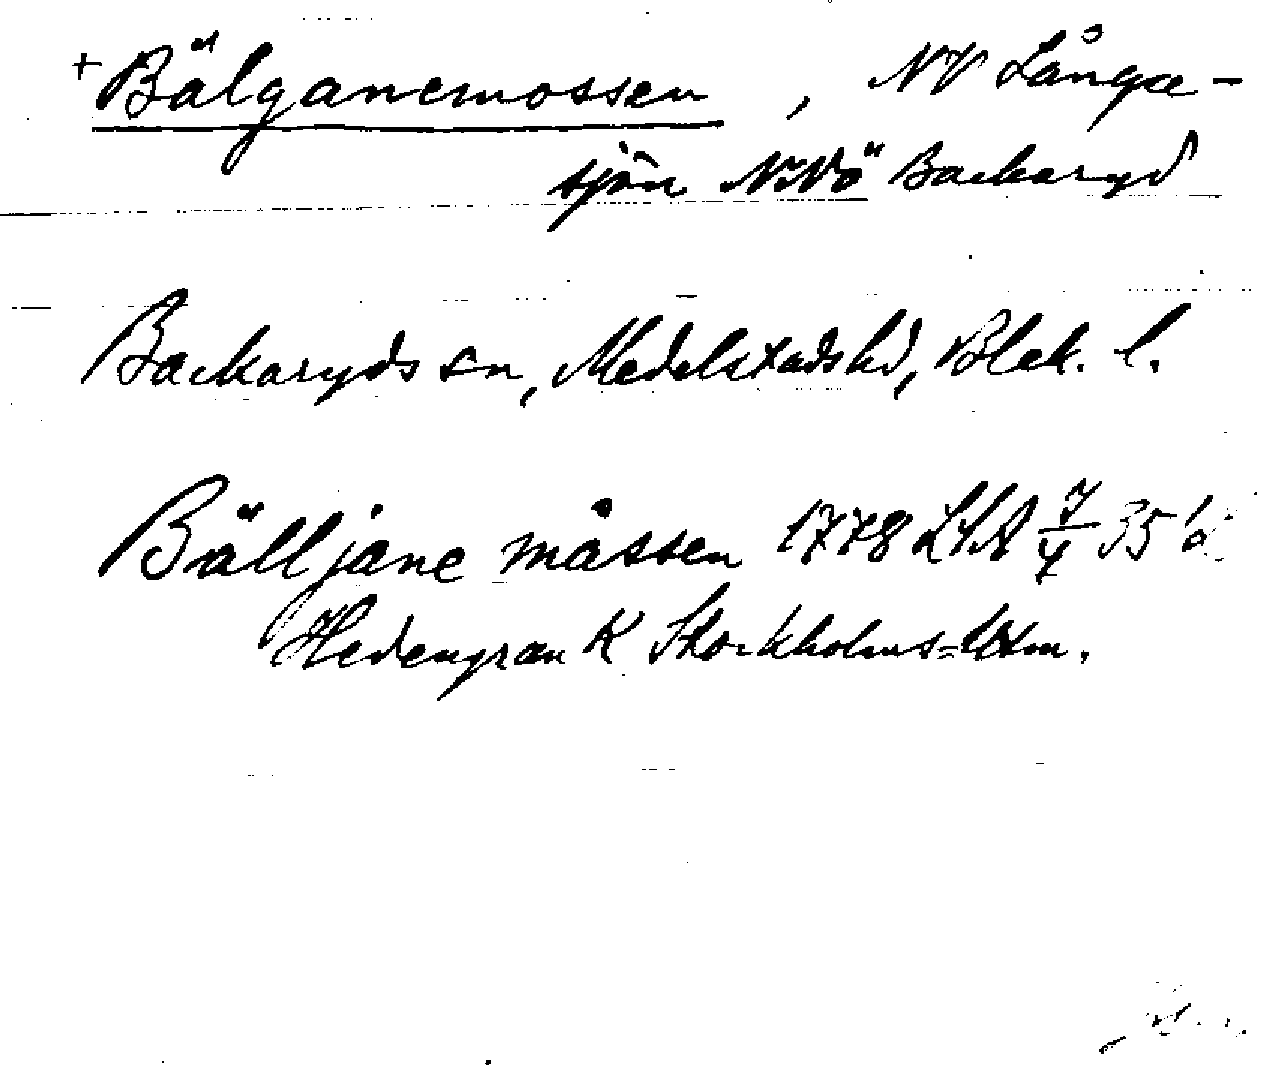 + Bälganemossen, NV Långa-
sjön NNÖ Backaryd
Backaryds sn, Medelstads hd, Blek. l.
Bälljane måssen 1778 LSA 7/4 35
Hedengran K Stockholms=